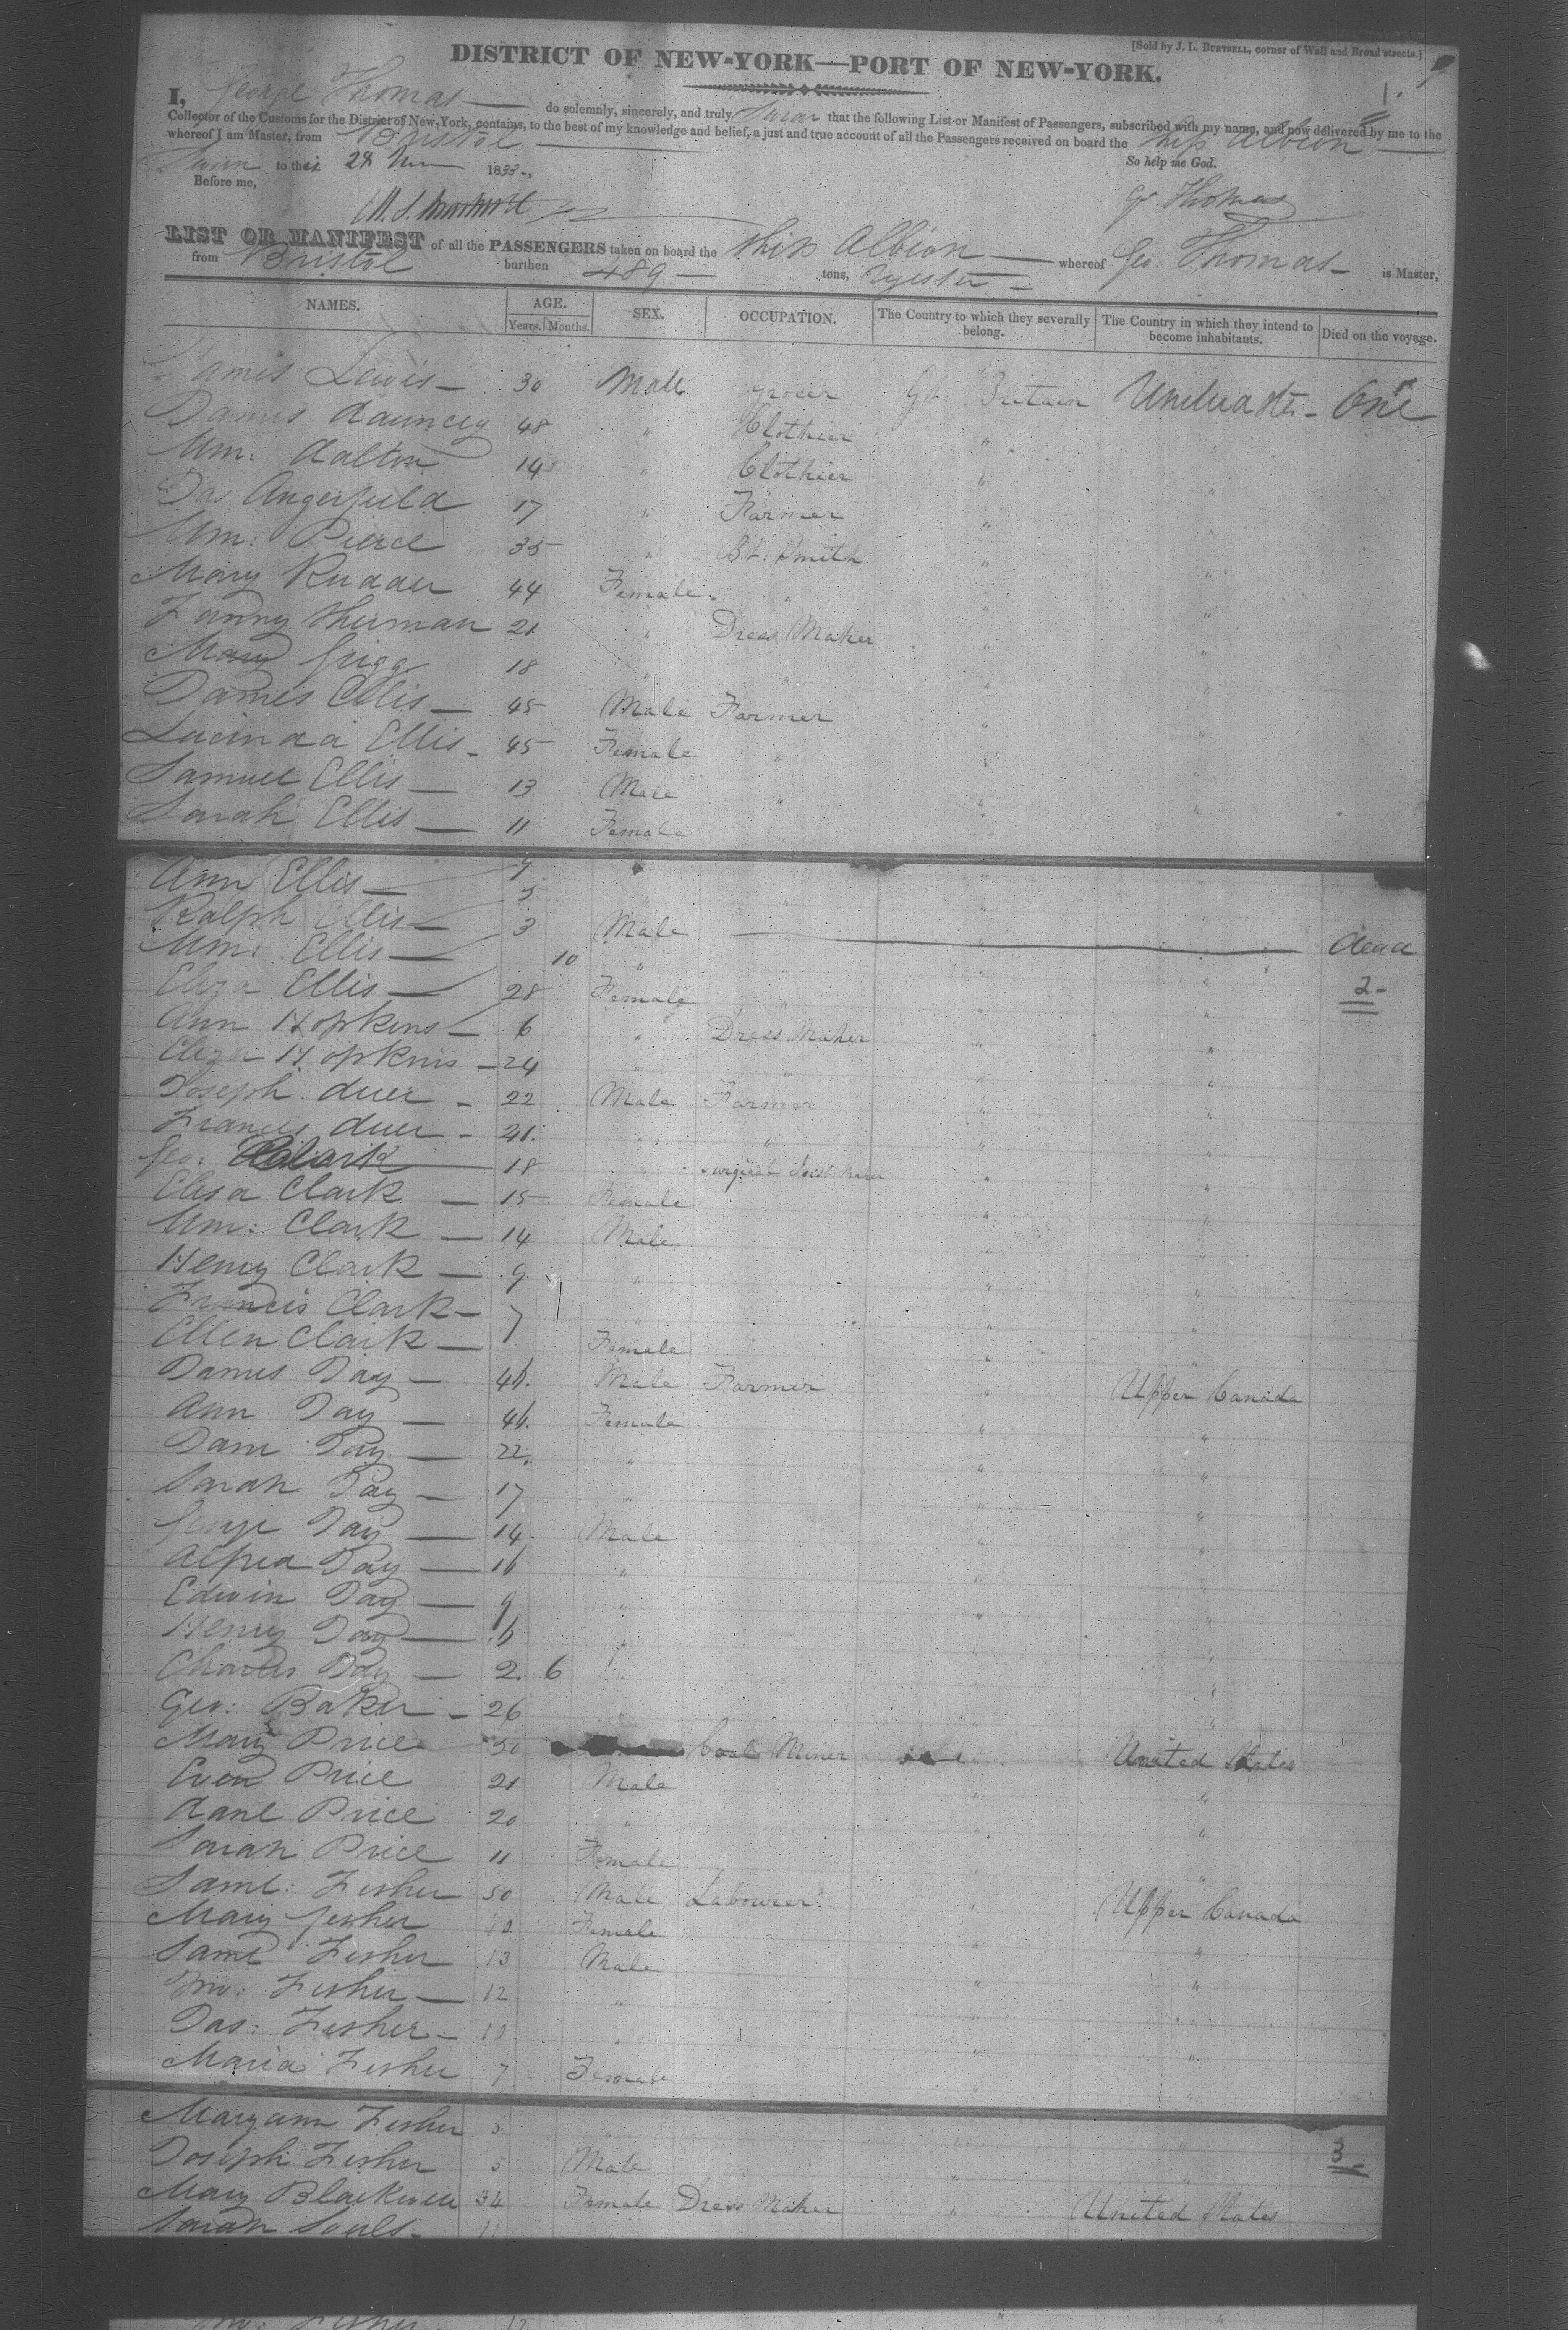 [Sold by J. L. BURTSELL, corner of Wall and Broad streets.]
DISTRICT OF NEW-YORK—PORT OF NEW-YORK.
1.
I, George Thomas do solemnly, sincerely, and truly Swear that the following List or Manifest of Passengers, subscribed with my name, and now delivered by me to the
Collector of the Customs for the District of New-York, contains, to the best of my knowledge and belief, a just and true account of all the Passengers received on board the Ship Albion
whereof I am Master, from Bristol
Sworn to this 28 1833,
So help me God.
Before me,
Geo Thomas
LIST OR MANIFEST of all the PASSENGERS taken on board the Ship Albion whereof Geo. Thomas is Master,
from Bristol burthen 489 tons,
NAMES. AGE. SEX. OCCUPATION. The Country to which they severally belong. The Country in which they intend to become inhabitants. Died on the voyage.
Years. Months.
James Lewis 30 Male grocer Gt. Britain United States One
James dauncey 48 " Clothier " "
Wm: dalton 14 " Clothier " "
Jas Angerfield 17 " Farmer " "
Wm: Pierce 35 " Bl. Smith " "
Mary Rudder 44 Female " " "
Fanny Sherman 21 " Dress Maker " "
Mary Griggs 18 " " " "
James Ellis 45 Male Farmer " "
Lucinda Ellis 45 Female " " "
Samuel Ellis 13 Male " " "
Sarah Ellis 11 Female " "
Ann Ellis 9 " " "
5
Ralph Ellis 3 Male " dead
Wm: Ellis 10 " " "
Eliza Ellis 28 Female " " " 2
Ann Hopkins 6 " Dress Maker " "
Eliza Hopkins 24 " " " "
Joseph duer 22 Male Farmer " "
Francis duer 21. " " " "
Geo: Clark 18 Surgical Inst. Maker " "
Elisa Clark 15 Female " "
Wm: Clark 14 Male " "
Henry Clark 9 " " "
Francis Clark 7 " " "
Ellen Clark Female " "
James Day 46. Male Farmer " Upper Canada
Ann Day 46. Female " "
Jane Day 22. " " "
Sarah Day 17 " " "
George Day 14. Male " "
Alfred Day 16 " " "
Edwin Day 9 " " "
Henry Day 6 " " "
Charles Day 2. 6 " " "
Geo: Baker 26 " " "
Mary Price 50 Coal Miner United States
Even Price 21 Male " "
dane Price 20 " " "
Sarah Price 11 Female "
Saml: Fisher 50 Male Labourer " Upper Canada
Mary fisher 40 Female " "
Saml Fisher 13 Male " "
Jno: Fisher 12 " " "
Jas: Fisher 10 " " "
Maria Fisher 7 Female " "
Maryann Fisher 5 " "
Joseph Fisher 5 Male " " 3
Mary Blackwell 34 Female Dress Maker " United States
Sarah Souls 11
Jno: Fisher 12 " "